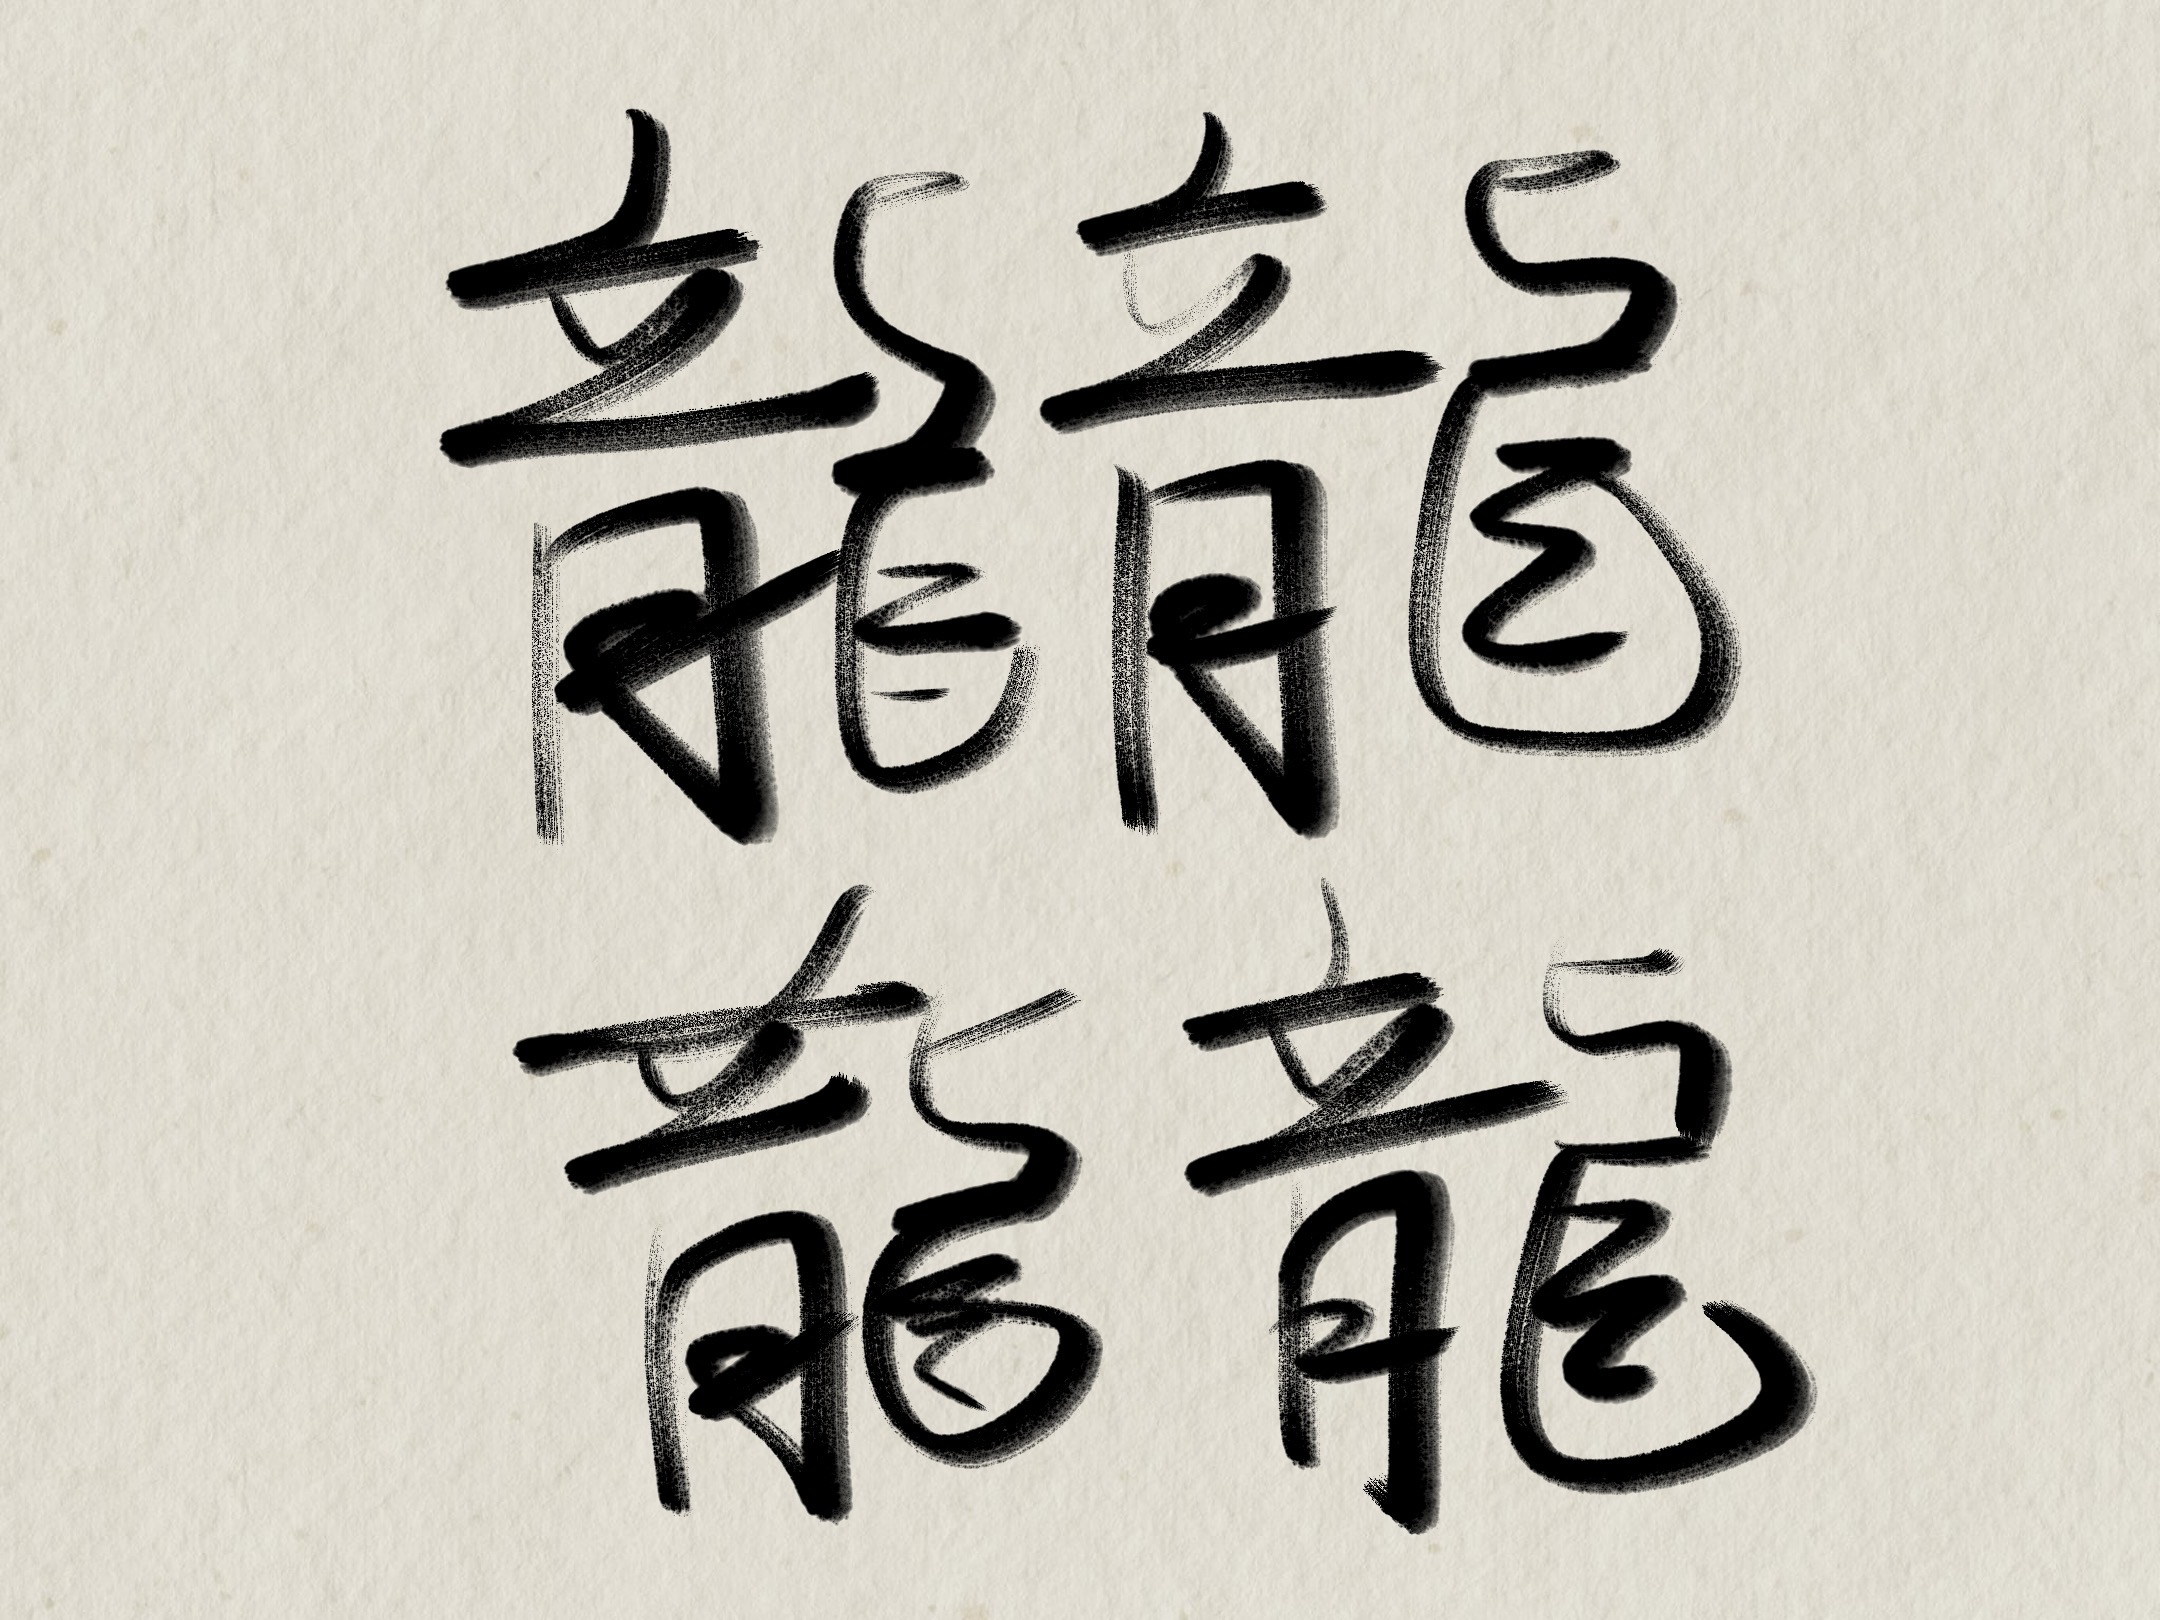 龍龍
龍龍